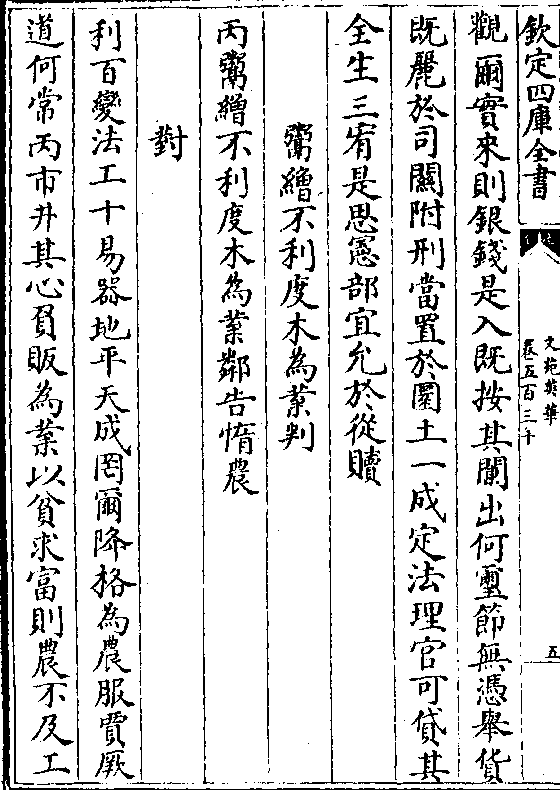 欽定四庫全書
文苑英華
卷五百三十
五
觀爾實來則銀錢是入既按其闌出何璽節無憑舉貨
既麗於司關附刑當置於圜土一成定法理官可貸其
全生三宥是思憲部宜允於從贖
鬻繒不利度木為業判
丙鬻繒不利度木為業鄰告惰農
對
利百變法工十易器地平天成罔爾降格為農服賈厥
道何常丙市井其心貿販為業以貧求富則農不及工